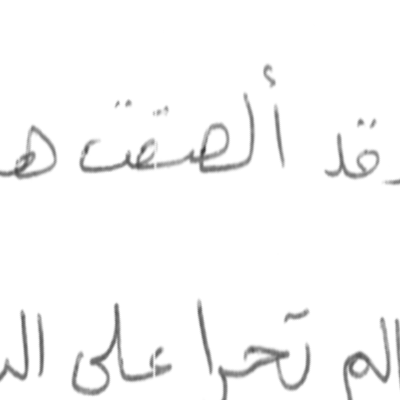 وقد ألصقت هـ
الم تحرا على الـ